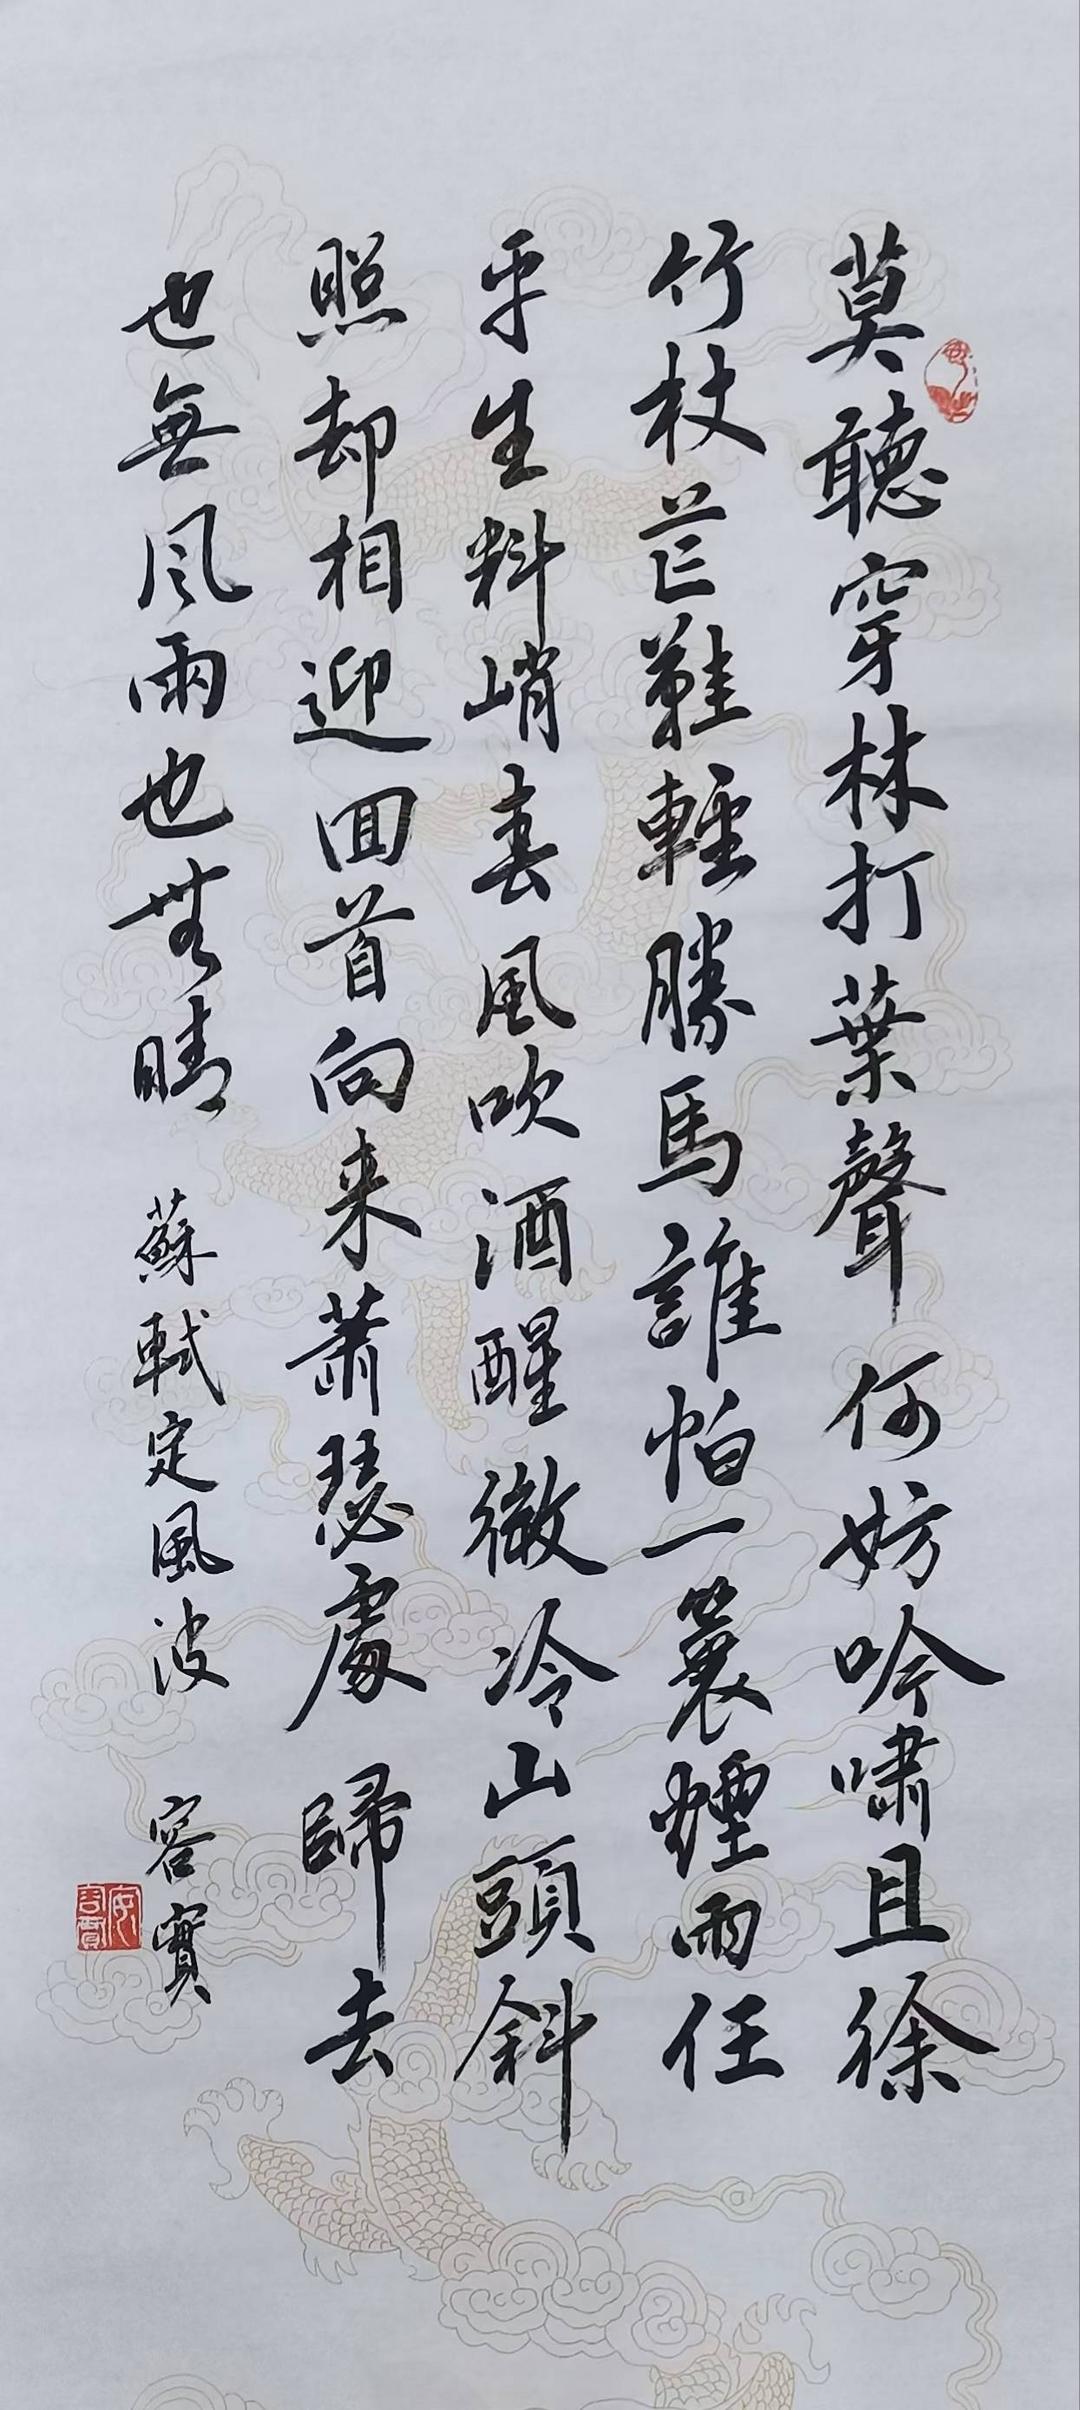 莫聽穿林打葉聲何妨吟嘯且徐
竹杖芒鞋輕勝馬誰怕一蓑煙雨任
平生料峭春風吹酒醒微冷山頭斜
照却相迎回首向来蕭瑟處歸去
也無風雨也無晴
蘇軾定風波
容實